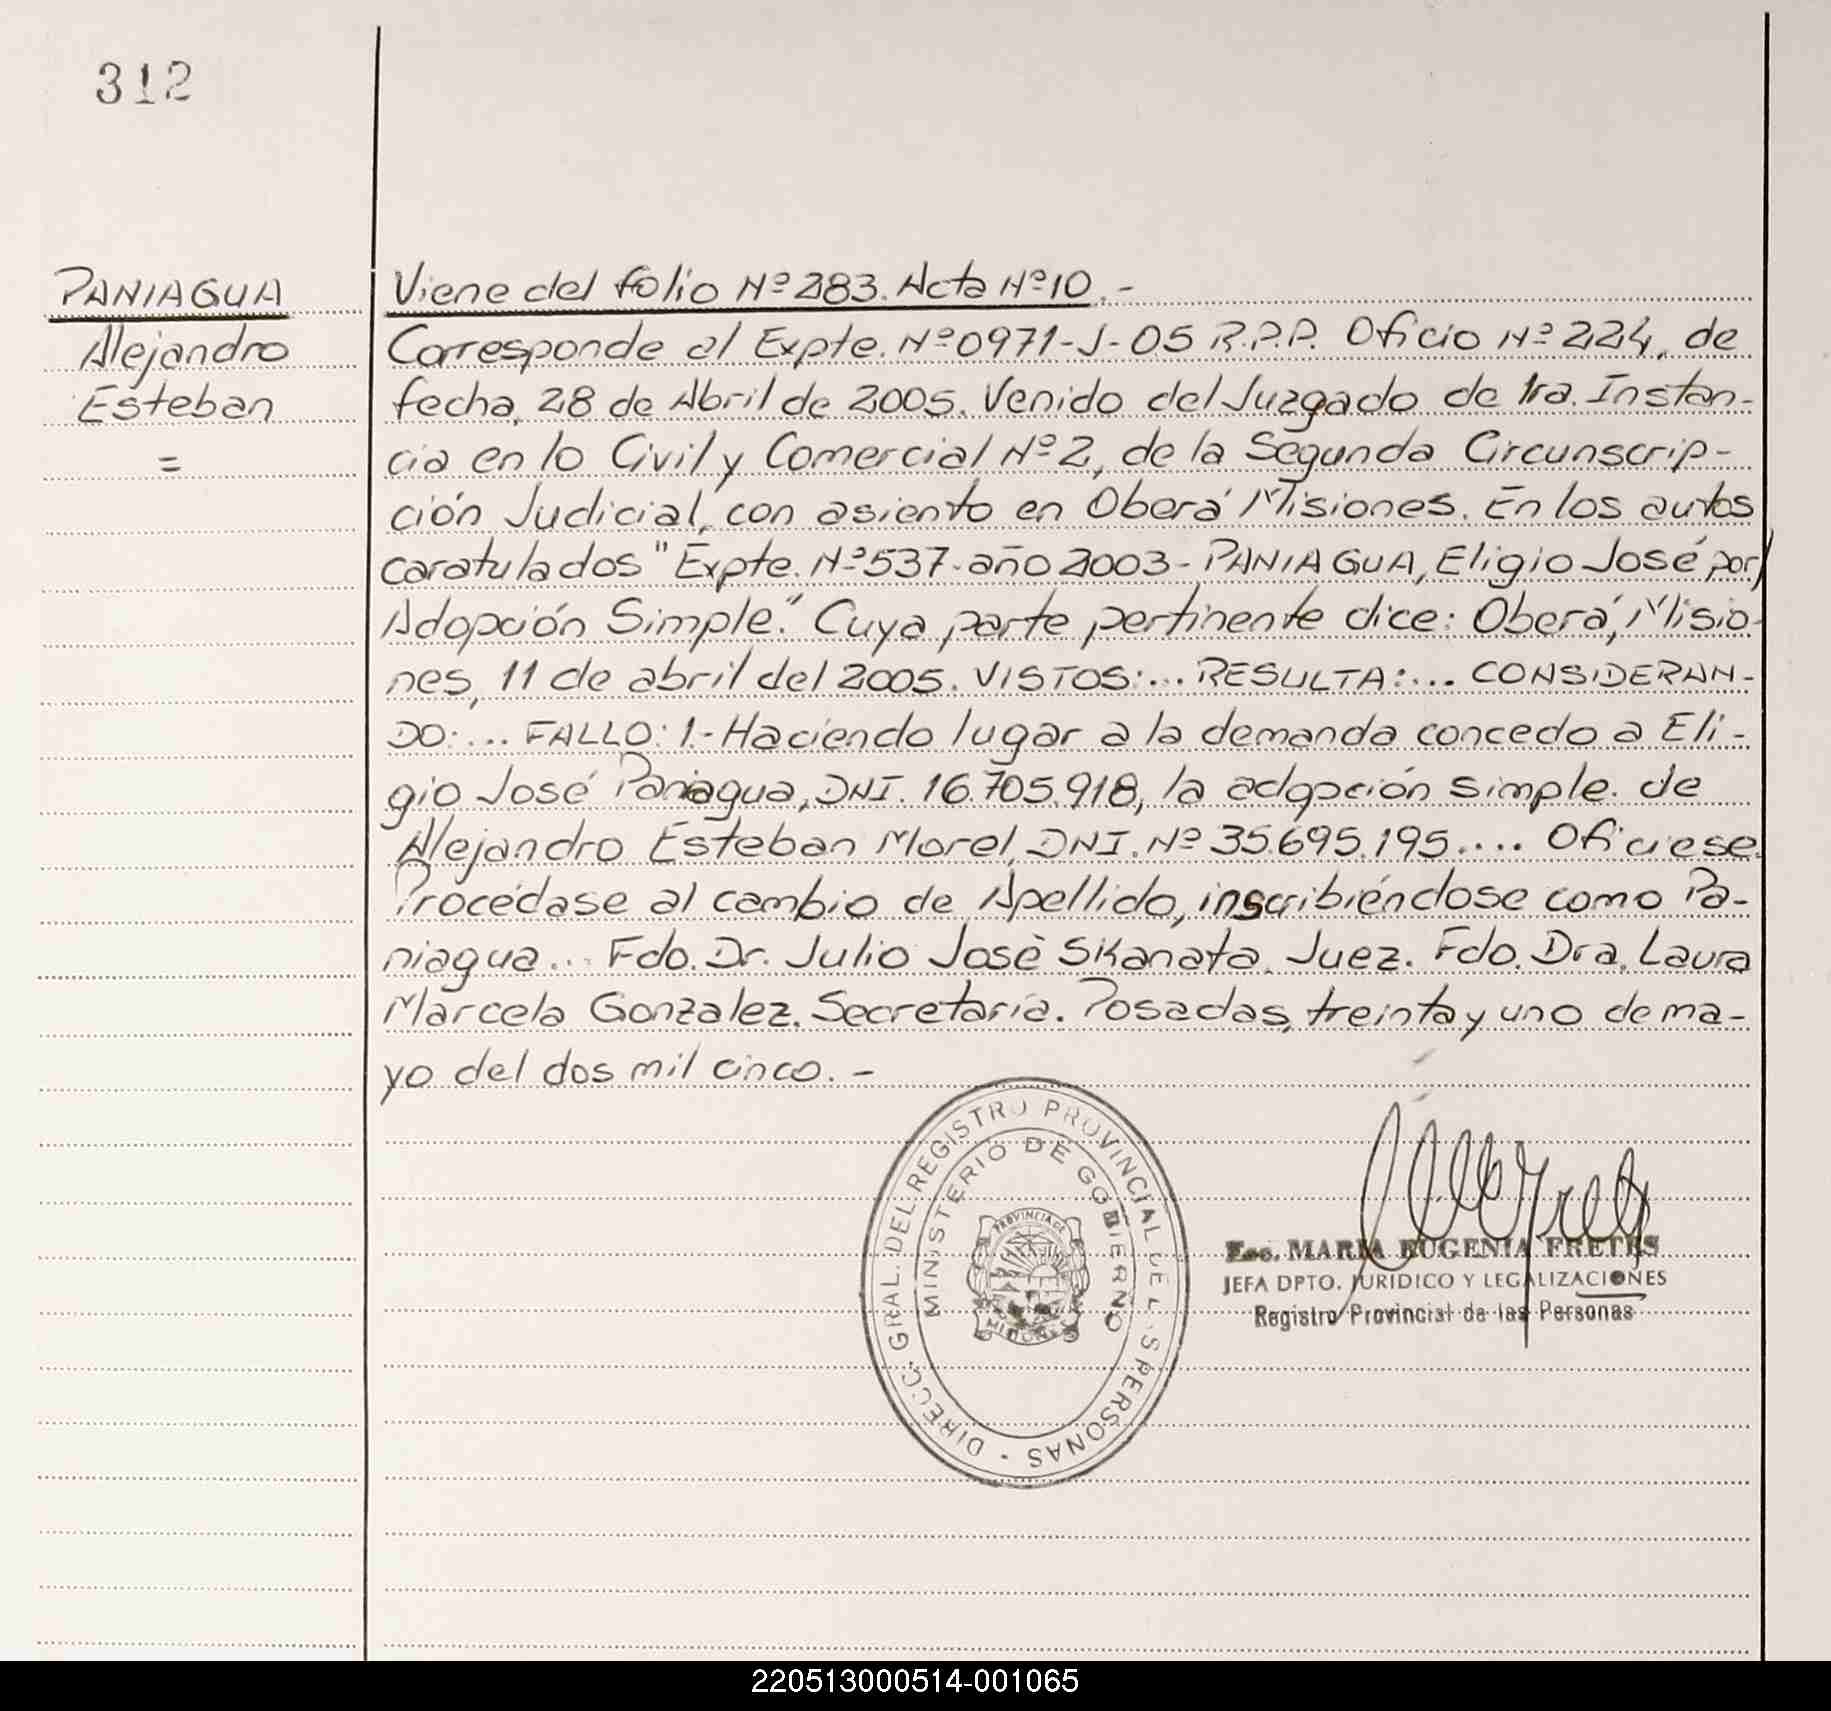 312
PANIAGUA
Alejandro
Esteban
=
Viene del folio Nº 283. Acta Nº 10.-
Corresponde al Expte. Nº 0971-J-05 R.P.P. Oficio Nº 224, de
fecha, 28 de Abril de 2005. Venido del Juzgado de 1ra. Instan-
cia en lo Civil y Comercial Nº 2, de la Segunda Circunscrip-
ción Judicial, con asiento en Oberá Misiones. En los autos
caratulados "Expte. Nº 537-año 2003- PANIAGUA, Eligio José por/
Adopción Simple". Cuya parte pertinente dice: Oberá, Misio-
nes, 11 de abril del 2005. VISTOS:... RESULTA:... CONSIDERAN-
DO:... FALLO: 1.- Haciendo lugar a la demanda concedo a Eli-
gio José Paniagua, DNI. 16.705.918, la adopción simple. de
Alejandro Esteban Morel, DNI. Nº 35.695.195.... Ofíciese.
Procédase al cambio de Apellido, inscribiéndose como Pa-
niagua... Fdo. Dr. Julio Josè Skanata. Juez. Fdo. Dra. Laura
Marcela Gonzalez. Secretaria. Posadas, treinta y uno de ma-
yo del dos mil cinco.-
DIRECC. GRAL. DEL REGISTRO PROVINCIAL DE LAS PERSONAS -
MINISTERIO DE GOBIERNO
PROVINCIA DE
MISIONES
Esc. MARIA EUGENIA FRETES
JEFA DPTO. JURIDICO Y LEGALIZACIONES
Registro Provincial de las Personas
220513000514-001065